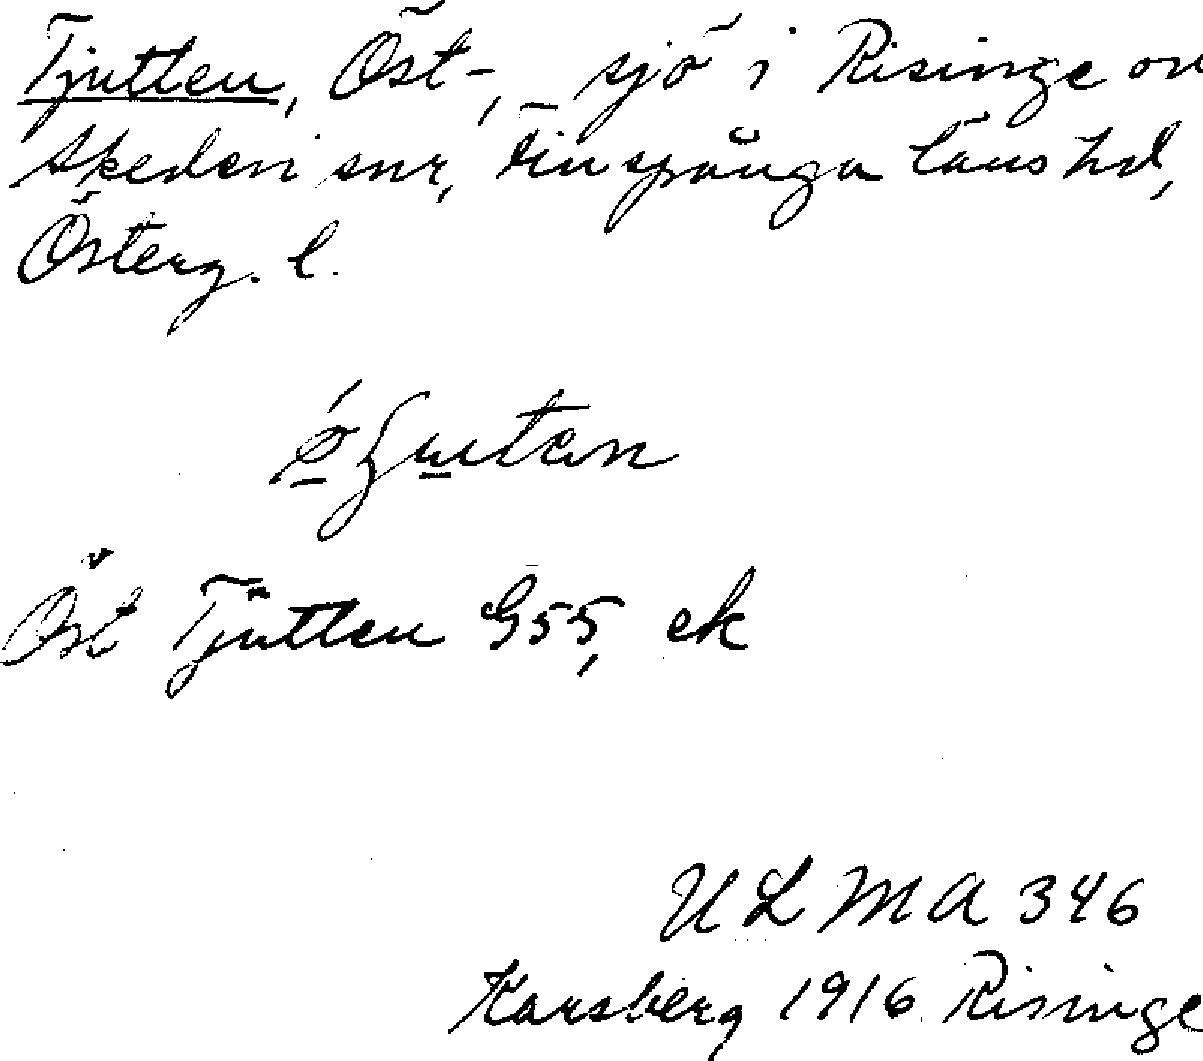 Tjutten, Öst-, sjö i Risinge o
Skedevi snr, Finspånga läns hd,
Österg. l.
Öst Tjutten G55, ek
ULMA 346
Karsberg 1916 Risinge